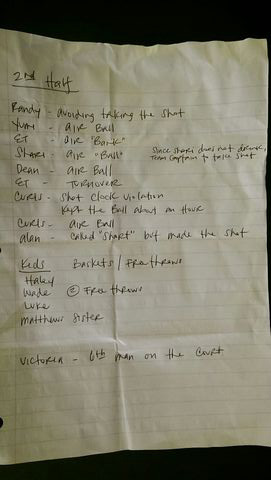 2nd Half
Randy - avoiding taking the shot
Yumi - air Ball
ET - air "Bank"
Shari - air "Ball"
Since shari does not drink,
Team Captain to take shot
Dean - air Ball
ET - TURNOVER
Curls - Shot clock violation
Kept the Ball about an Hour
Curls - air Ball
alan - called "Short" but made the shot
Kids Baskets / Free throws
Haley
Wade ② Free throws
Luke
Matthews Sister
Victoria - 6th man on the Court